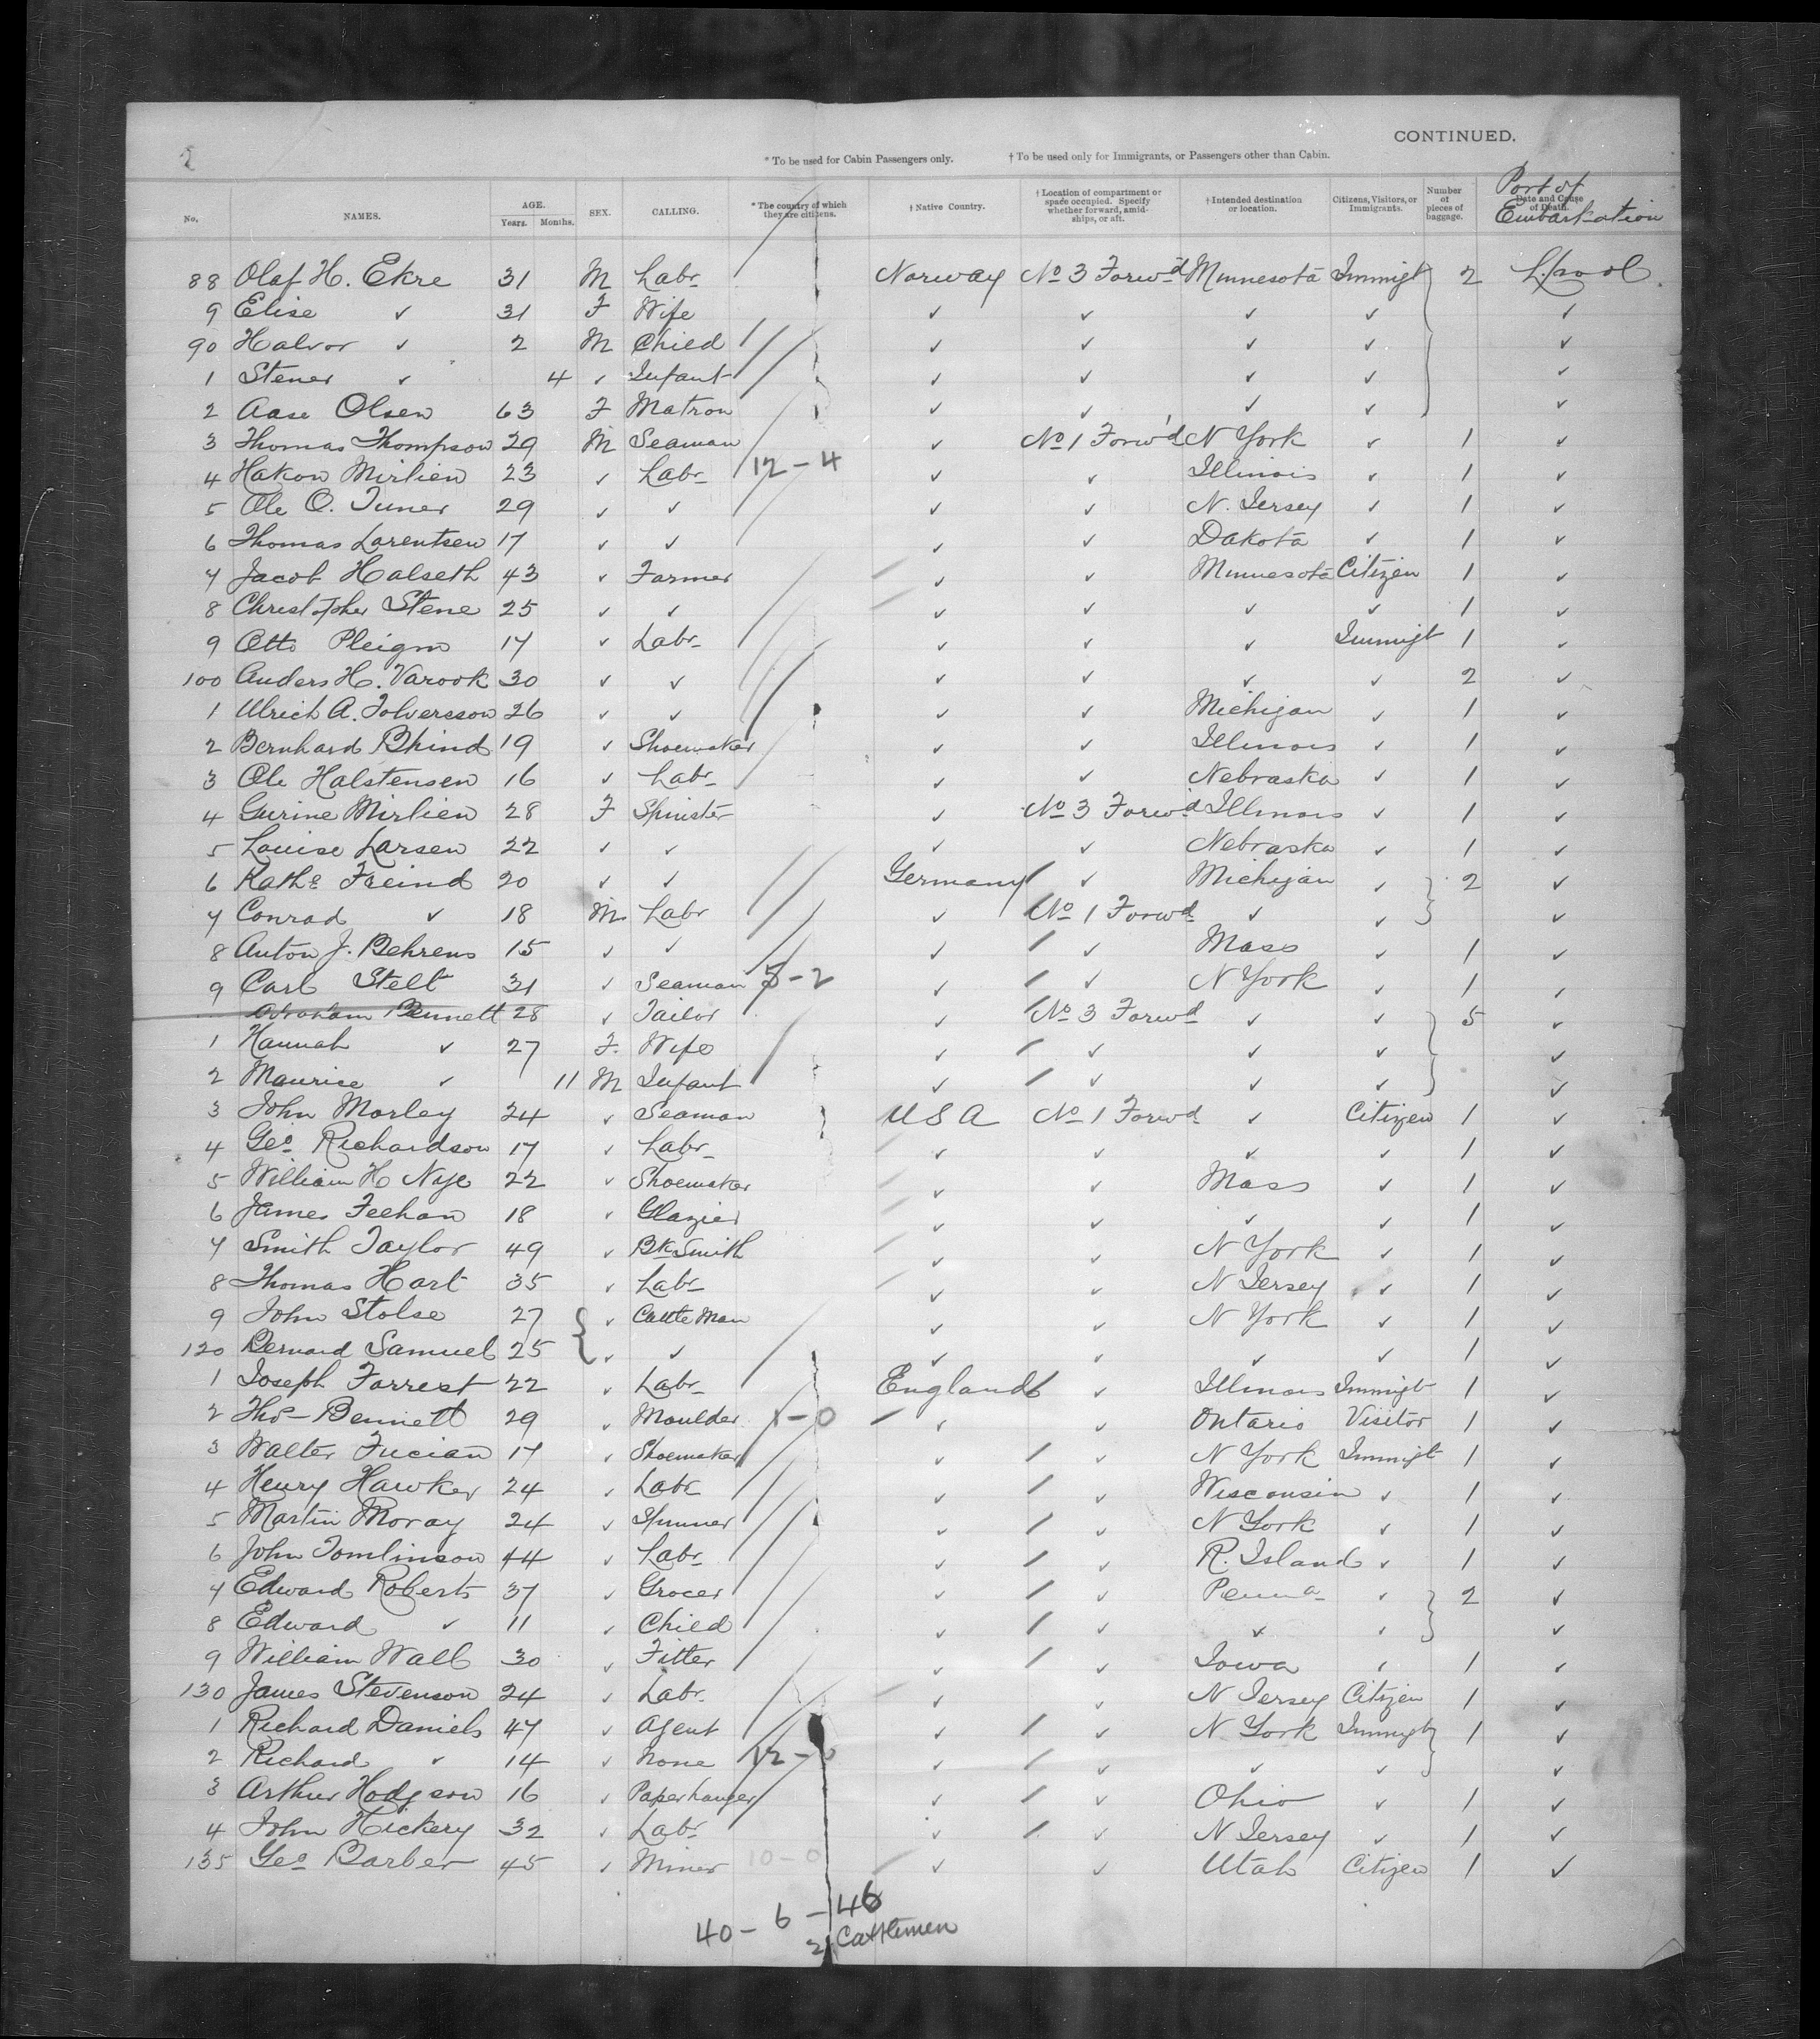 2
CONTINUED.
* To be used for Cabin Passengers only. † To be used only for Immigrants, or Passengers other than Cabin.
No. NAMES. AGE. Years. Months. SEX. CALLING. * The country of which they are citizens. † Native Country. † Location of compartment or space occupied. Specify whether forward, amidships, or aft. † Intended destination or location. Citizens, Visitors, or Immigrants. Number of pieces of baggage. Date and Cause of Death. Port of Embarkation
88 Olaf H. Ekre 31 M Labr Norway No 3 Forwd Minnesota Immigt 2 L.pool
9 Elise ✓ 31 F Wife ✓ ✓ ✓ ✓ ✓
90 Halvor ✓ 2 M Child ✓ ✓ ✓ ✓ ✓
1 Stener ✓ 4 ✓ Infant ✓ ✓ ✓ ✓ ✓
2 Aase Olsen 63 F Matron ✓ ✓ ✓ ✓ ✓
3 Thomas Thompson 29 M Seaman ✓ No 1 Forw'd N York ✓ 1 ✓
4 Hakon Mirlien 23 ✓ Labr 12-4 ✓ ✓ Illinois ✓ 1 ✓
5 Ole O. Tuner 29 ✓ ✓ ✓ ✓ N. Jersey ✓ 1 ✓
6 Thomas Larentsen 17 ✓ ✓ ✓ ✓ Dakota ✓ 1 ✓
7 Jacob Halseth 43 ✓ Farmer ✓ ✓ Minnesota Citizen 1 ✓
8 Christopher Stene 25 ✓ ✓ ✓ ✓ ✓ ✓ 1 ✓
9 Otto 17 ✓ Labr ✓ ✓ ✓ Immigt 1 ✓
100 Anders H. Varook 30 ✓ ✓ ✓ ✓ ✓ ✓ 2 ✓
1 Ulrich A. Tolversson 26 ✓ ✓ ✓ ✓ Michigan ✓ 1 ✓
2 Bernhard Bhind 19 ✓ Shoemaker ✓ ✓ Illinois ✓ 1 ✓
3 Ole Halstensen 16 ✓ Labr ✓ ✓ Nebraska ✓ 1 ✓
4 Gurine Mirlien 28 F Spinster ✓ No 3 Forwd Illinois ✓ 1 ✓
5 Louise Larsen 22 ✓ ✓ ✓ ✓ Nebraska ✓ 1 ✓
6 Kathe Freind 20 ✓ ✓ Germany ✓ Michigan ✓ 2 ✓
7 Conrad ✓ 18 M Labr ✓ No 1 Forwd ✓ ✓ ✓
8 Anton J. Behrens 15 ✓ ✓ ✓ ✓ Mass ✓ 1 ✓
9 Carl Stelt 31 ✓ Seaman 5-2 ✓ ✓ N York ✓ 1 ✓
Abraham Bennett 28 ✓ Tailor ✓ No 3 Forwd ✓ ✓ 5 ✓
1 Hannah ✓ 27 F. Wife ✓ ✓ ✓ ✓ ✓
2 Maurice ✓ 11 M Infant ✓ ✓ ✓ ✓ ✓
3 John Morley 24 ✓ Seaman USA No 1 Forwd ✓ Citizen 1 ✓
4 Geo Richardson 17 ✓ Labr ✓ ✓ ✓ ✓ 1 ✓
5 William H Nye 22 ✓ Shoemaker ✓ ✓ Mass ✓ 1 ✓
6 James Feehan 18 ✓ Glazier ✓ ✓ ✓ ✓ 1 ✓
7 Smith Taylor 49 ✓ Bk Smith ✓ ✓ N York ✓ 1 ✓
8 Thomas Hart 35 ✓ Labr ✓ ✓ N Jersey ✓ 1 ✓
9 John Stolse 27 ✓ Cattle Man ✓ ✓ N York ✓ 1 ✓
120 Bernard Samuel 25 ✓ ✓ ✓ ✓ ✓ ✓ 1 ✓
1 Joseph Forrest 22 ✓ Labr England ✓ Illinois Immigt 1 ✓
2 Thos Bennett 29 ✓ Moulder 1-0 ✓ ✓ Ontario Visitor 1 ✓
3 Walter Fucian 17 ✓ Shoemaker ✓ ✓ N York Immigt 1 ✓
4 Henry Hawker 24 ✓ Labr ✓ ✓ Wisconsin ✓ 1 ✓
5 Martin Moray 24 ✓ Spinner ✓ ✓ N York ✓ 1 ✓
6 John Tomlinson 44 ✓ Labr ✓ ✓ R. Island ✓ 1 ✓
7 Edward Roberts 37 ✓ Grocer ✓ ✓ Penna ✓ 2 ✓
8 Edward ✓ 11 ✓ Child ✓ ✓ ✓ ✓ ✓
9 William Wall 30 ✓ Fitter ✓ ✓ Iowa ✓ 1 ✓
130 James Stevenson 24 ✓ Labr. ✓ ✓ N Jersey Citizen 1 ✓
1 Richard Daniels 47 ✓ Agent ✓ ✓ N York Immigt 1 ✓
2 Richard ✓ 14 ✓ None 12-0 ✓ ✓ ✓ ✓ ✓
3 Arthur Hodgson 16 ✓ Paperhanger ✓ ✓ Ohio ✓ 1 ✓
4 John Hickery 32 ✓ Labr ✓ ✓ N Jersey ✓ 1 ✓
135 Geo Barber 45 ✓ Miner 10-0 ✓ ✓ Utah Citizen 1 ✓
40-6-46
2 Cattlemen